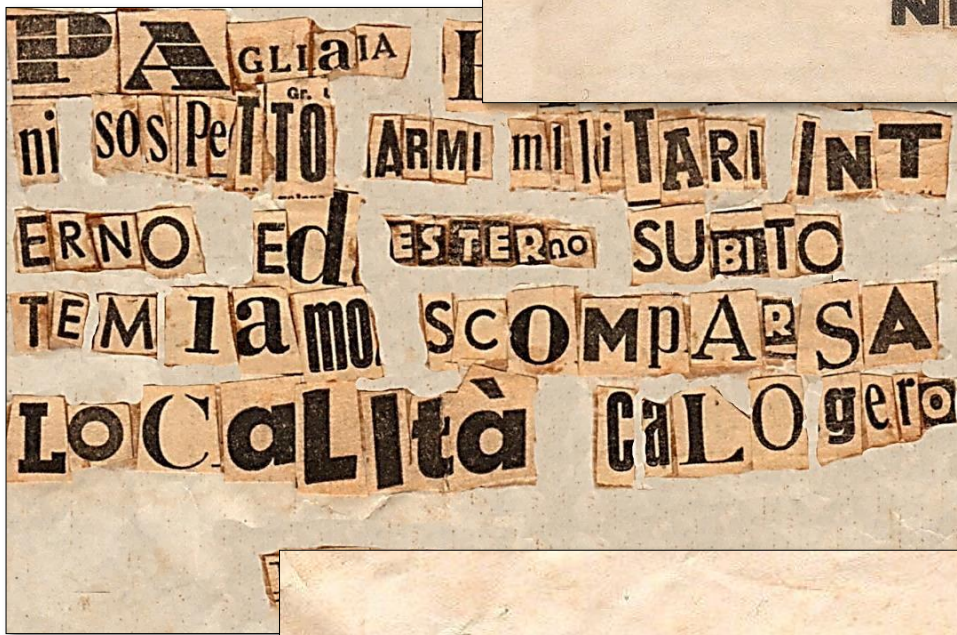 PAGLIaIA
ni SOSPeTTO ARMI mIliTARI INT
ERNO Ed ESTERno SUBITO
TEMIamo SCOMpARSA
LOCaLItà CaLOgero